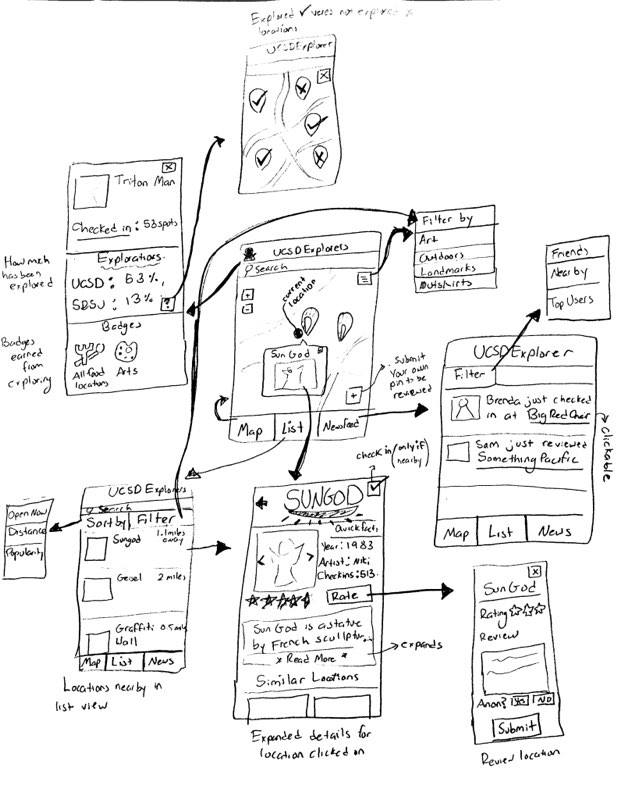 Explored ✓ verses not explored x
locations
UCSDExplorer
Triton Man
Checked in: 53 spots
Explorations
UCSD: 53%
SBSU: 13%
?
Badges
All food
locations
Arts
How much
has been
explored
Badges
earned
from
exploring
UCSDExplorers
Search
+
-
current
location
Sun God
+
Map
List
Newsfeed
Submit
Your own
pin to be
reviewed
Filter by
Art
Outdoors
Landmarks
Friends
Nearby
Top Users
UCSDExplorer
Filter
Brenda just checked
in at Big Red Chair
Sam just reviewed
Something Pacific
Map
List
News
clickable
Open Now
Distance
Popularity
UCSD Explorers
Search
Sort by
Filter
Sungod
1.1 miles
away
Geisel
2 miles
Graffiti
Wall
0.5 mile
Map
List
News
Locations nearby in
list view
check in (only if
nearby)
SUNGOD
Quick facts
Year: 1983
Artist: Niki
Checkins: 513
Rate
Sun God is a statue
by French sculptur...
* Read More *
expands
Similar Locations
Expanded details for
location clicked on
Sun God
Rating
Review
Anon?
Yes
No
Submit
Review location